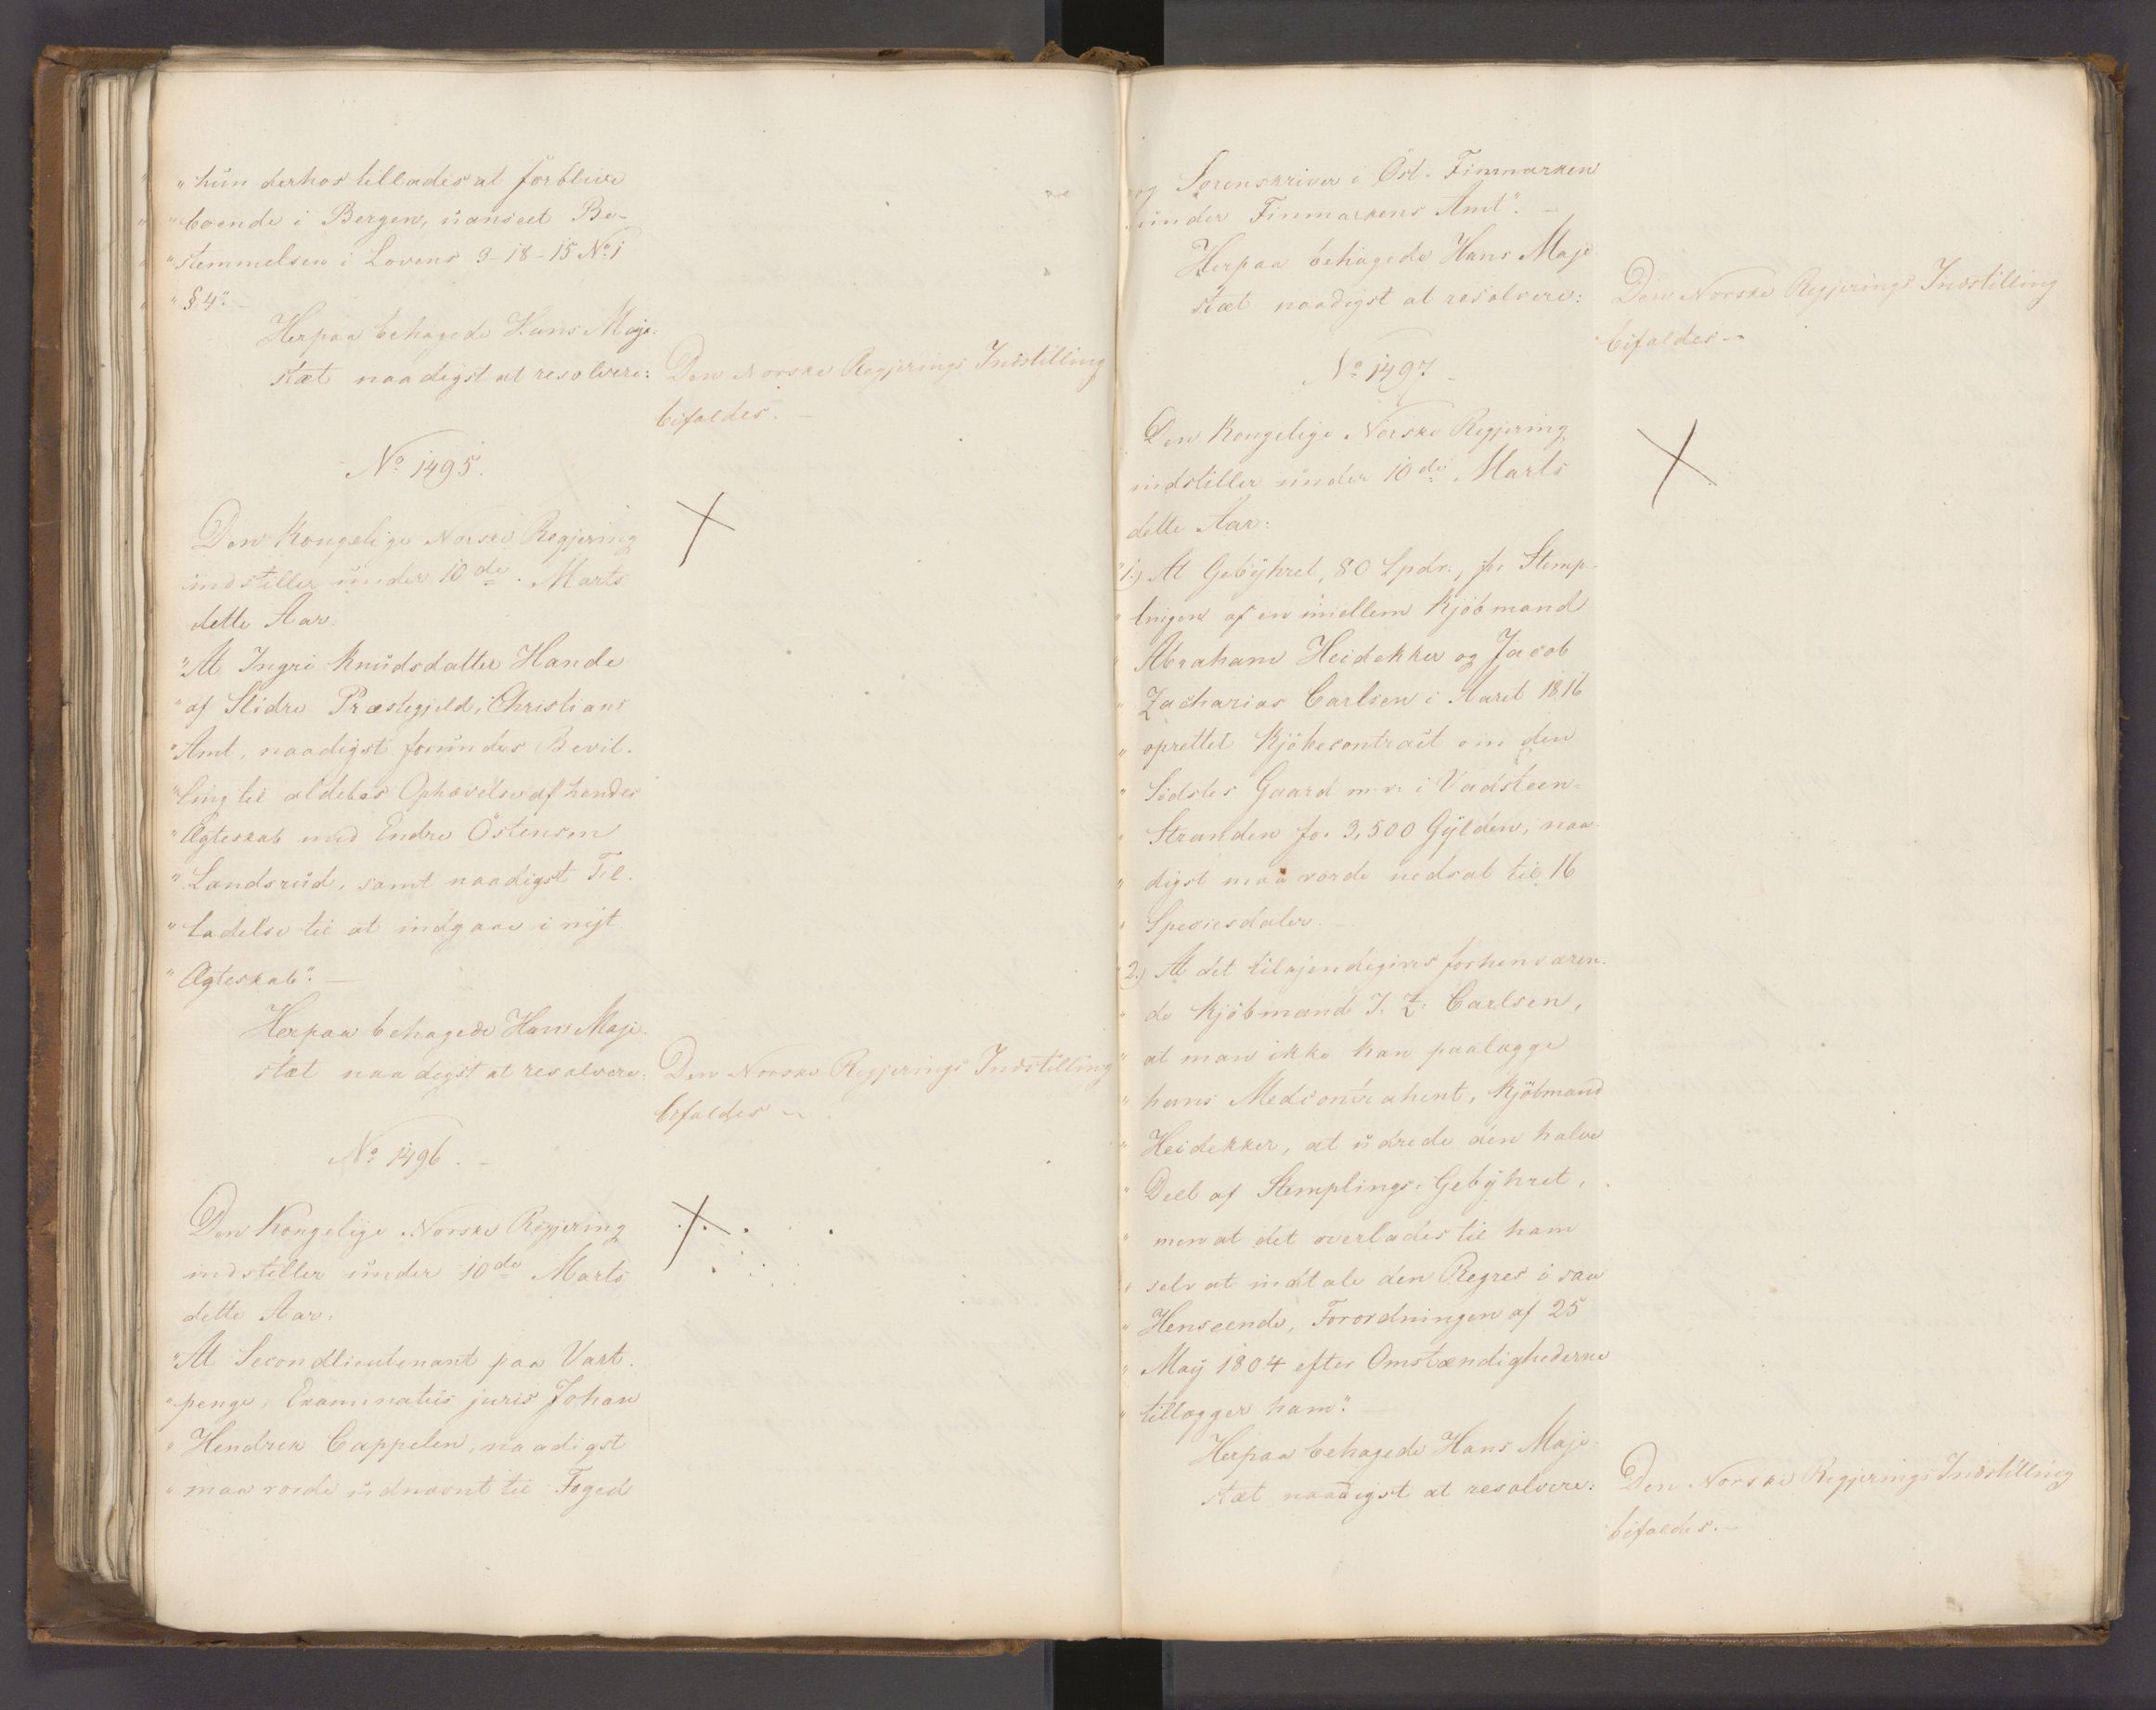 "hun derhos tillades at forblive
"boende i Bergen, uanseet Be-
"stemmelsen i Lovens 3-18-15 No 1
"§ 4". -
Herpaa behagede Hans Maje-
stæt naadigst at resolvere:
Den Norske Regjerings Indstilling
bifaldes. -
No 1495.
Den Kongelige Norske Regjering
indstiller under 10de Marts
dette Aar:
"At Ingri Knudsdatter Hande
"af Slidre Præstegjeld, Christians
"Amt, naadigst forundes Bevil-
"ling til aldeles Ophævelse af hendes
"Ægteskab med Endre Östensen
"Landsrud, samt naadigst Til-
"ladelse til at indgaae i nyt
"Ægteskab". -
Herpaa behagede Hans Maje-
stæt naadigst at resolvere:
Den Norske Regjerings Indstilling
bifaldes -
No 1496. -
Den Kongelige Norske Regjering
indstiller under 10de Marts
dette Aar:
"At Secondlieutenant paa Vart-
"penge, Examinatus juris Johan
"Hendrik Cappelen, naadigst
"maa vorde udnævnt til Foged
"og Sorenskriver i Öst-Finmarken
"under Finmarkens Amt". -
Herpaa behagede Hans Maje-
stæt naadigst at resolvere:
Den Norske Regjerings Indstilling
bifaldes -
No 1497 -
Den Kongelige Norske Regjering
indstiller under 10de Marts
dette Aar:
"1.) At Gebyhret, 80 Spdr., for Stemp-
"lingen af en imellem Kjöbmand
"Abraham Heidekker og Jacob
"Zacharias Carlsen i Aaret 1816
"oprettet Kjöbecontract om den
"Sidstes Gaard m. v. i Vadsteen-
"Stranden for 3,500 Gylden, naa-
"digst maa vorde nedsat til 16
"Speciesdaler. -
"2.) At det tilkjendegives forhenværen-
"de Kjöbmand J. Z. Carlsen,
"at man ikke kan paalægge
"hans Medcontrahent, Kjöbmand
"Heidekker, at udrede den halve
"Deel af Stemplings-Gebyhret,
"men at det overlades til ham
"selv at indtale den Regres i saa
"Henseende, Forordningen af 25
"May 1804 efter Omstændighederne
"tillægger ham". -
Herpaa behagede Hans Maje-
stæt naadigst at resolvere:
Den Norske Regjerings Indstilling
bifaldes. -